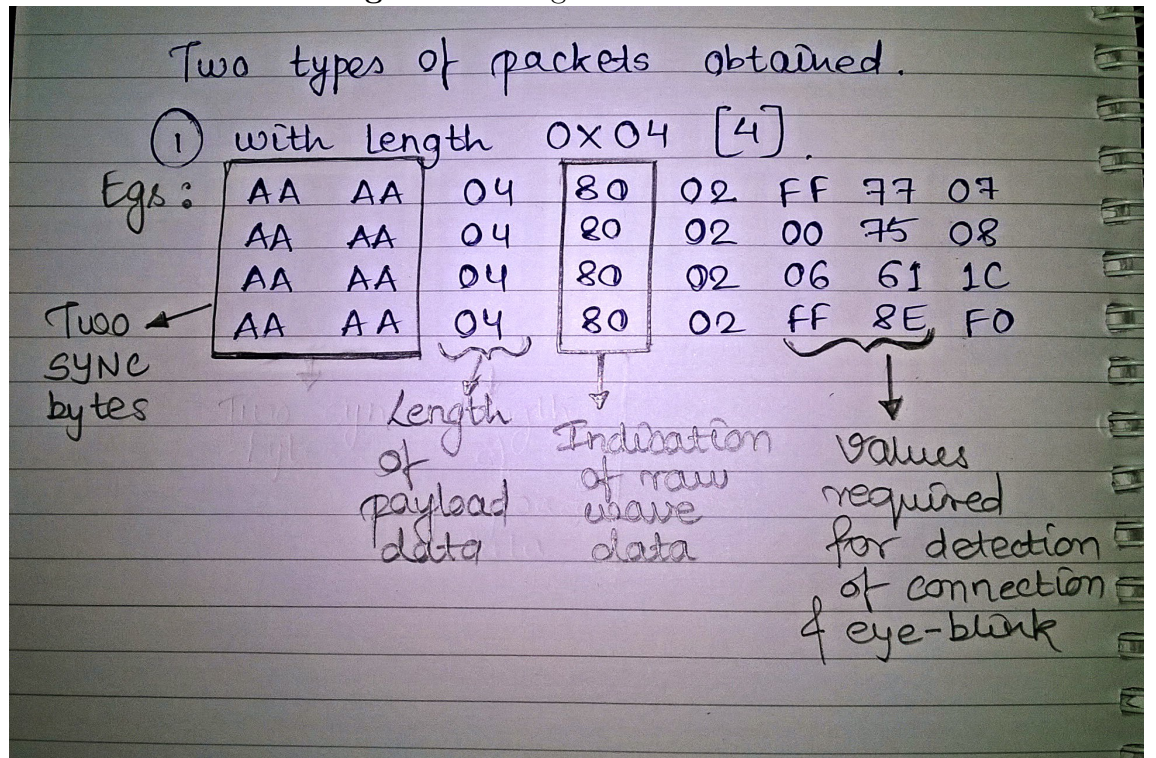 Two types of packets obtained.
① with Length 0X04 [4].
Egs: AA AA 04 80 02 FF 77 07
AA AA 04 80 02 00 75 08
AA AA 04 80 02 06 61 1C
AA AA 04 80 02 FF 8E F0
Two
SYNC
bytes
Length
of
payload
data
Indication
of raw
wave
data
Values
required
for detection
of connection
& eye-blink